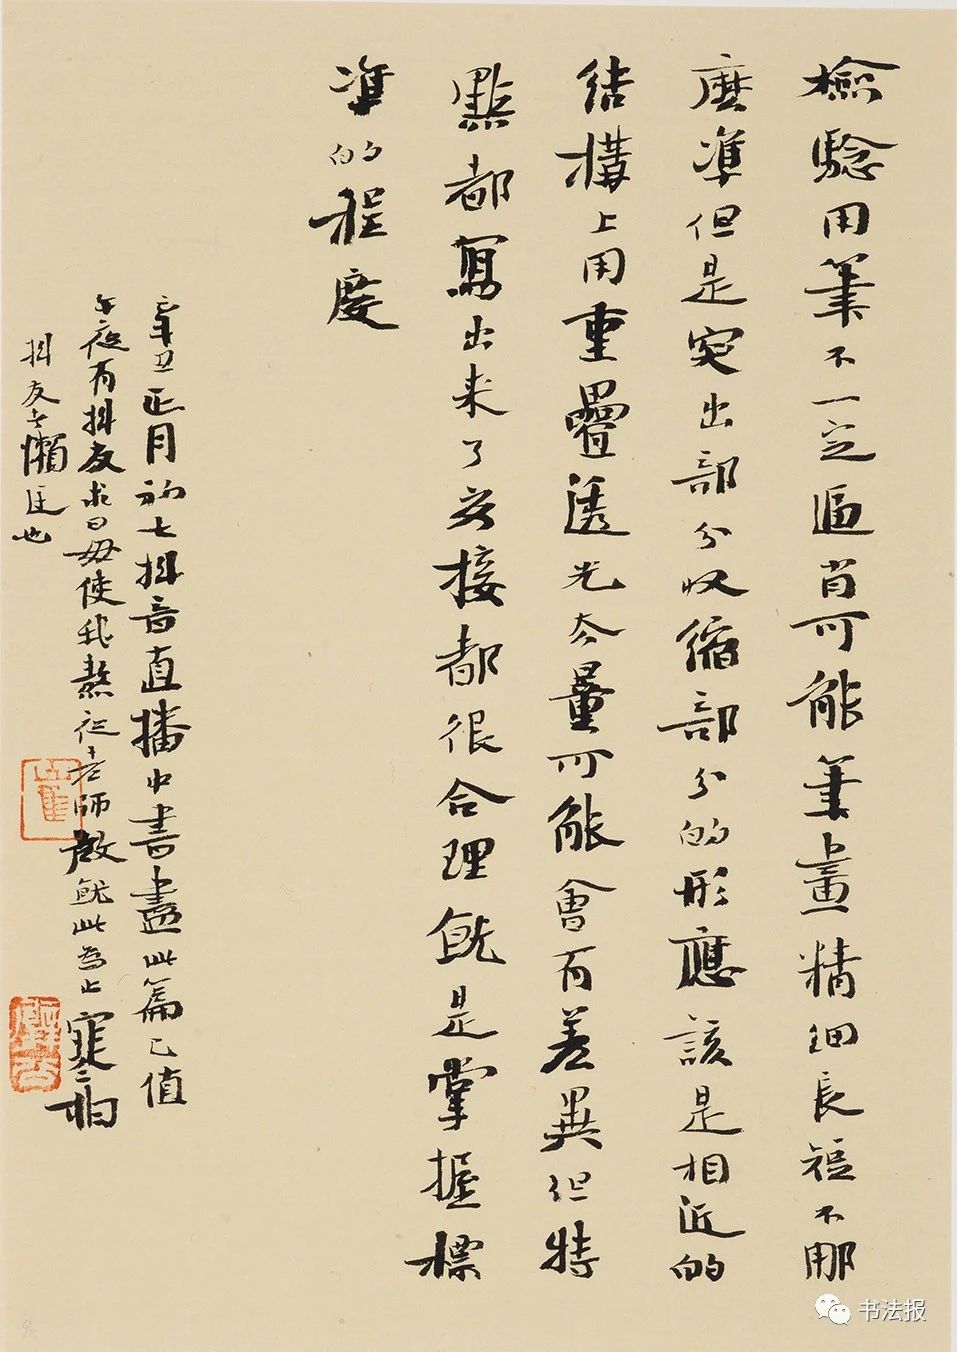 檢驗用筆不一定逼肖可能筆畫精細長短不那
麽準但是突出部分收縮部分的形應該是相近的
結構上用重疊透光太量可能會有差異但特
點都寫出來了安接都很合理既是掌握標
準的程度
辛丑正月初七抖音直播中書盡此篇已值
午夜有抖友求曰毋使我熬夜老師啟既此為止
抖友
也
书法报